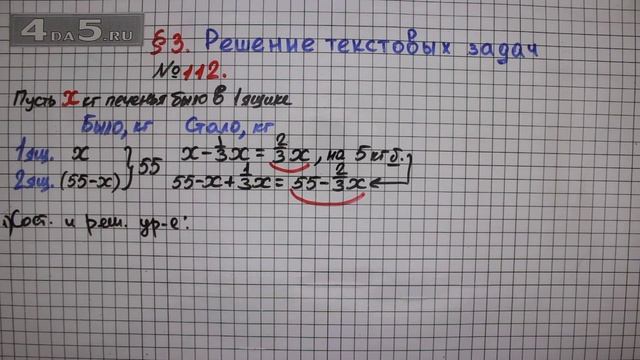 4DA5.RU
§3. Решение текстовых задач
№112.
Пусть x кг печенья было в 1 ящике
Было, кг Стало, кг
1 ящ. x } 55 x - 1/3x = 2/3x, на 5 кг б.
2 ящ. (55-x) 55-x+1/3x = 55-2/3x
1) Сост. и реш. ур-е: